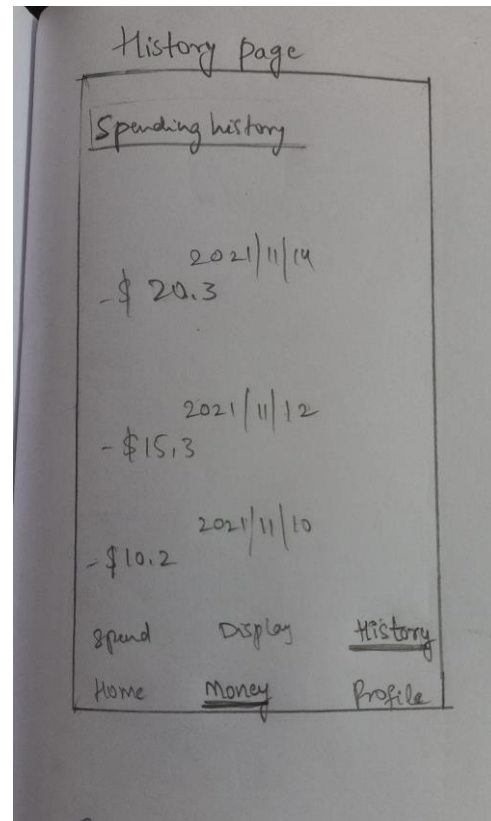 History page
Spending history
2021/11/14
-$ 20.3
2021/11/12
-$15.3
2021/11/10
-$10.2
Spend Display History
Home Money Profile